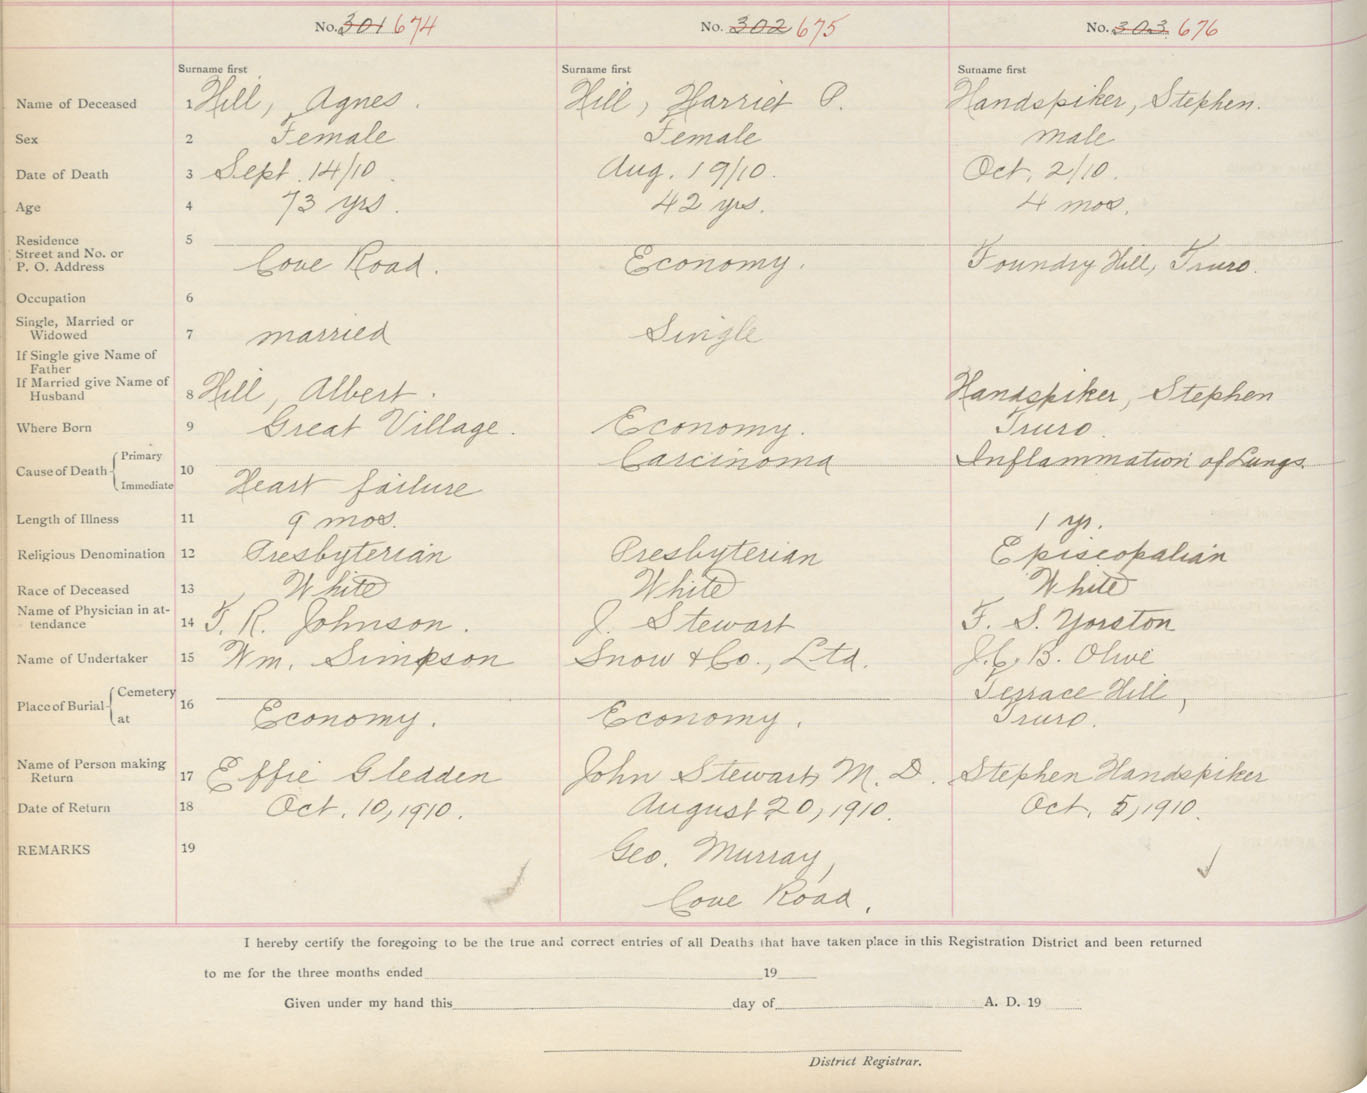 No. 301 674 No. 302 675 No. 303 676
Surname first Surname first Surname first
Name of Deceased 1 Hill, Agnes. Hill, Harriet P. Handspiker, Stephen.
Sex 2 Female Female male
Date of Death 3 Sept. 14/10. Aug. 19/10. Oct. 2/10.
Age 4 73 yrs. 42 yrs. 4 mos.
Residence 5
Street and No. or
P. O. Address Cove Road. Economy. Foundry Hill, Truro.
Occupation 6
Single, Married or
Widowed 7 married Single
If Single give Name of
Father
If Married give Name of
Husband 8 Hill, Albert. Handspiker, Stephen
Where Born 9 Great Village. Economy. Truro.
Cause of Death { Primary 10 Carcinoma Inflammation of Lungs.
Immediate Heart failure
Length of Illness 11 9 mos. 1 yr.
Religious Denomination 12 Presbyterian Presbyterian Episcopalian
Race of Deceased 13 White White White
Name of Physician in at-
tendance 14 T. R. Johnson. J. Stewart F. S. Yorston
Name of Undertaker 15 Wm. Simpson Snow & Co., Ltd. J. C. B. Olive
Place of Burial { Cemetery 16 Terrace Hill,
at Economy. Economy. Truro.
Name of Person making
Return 17 Effie Gledden John Stewart, M. D. Stephen Handspiker
Date of Return 18 Oct. 10, 1910. August 20, 1910. Oct. 5, 1910.
REMARKS 19 Geo. Murray,
Cove Road.
I hereby certify the foregoing to be the true and correct entries of all Deaths that have taken place in this Registration District and been returned
to me for the three months ended 19
Given under my hand this day of A. D. 19
District Registrar.